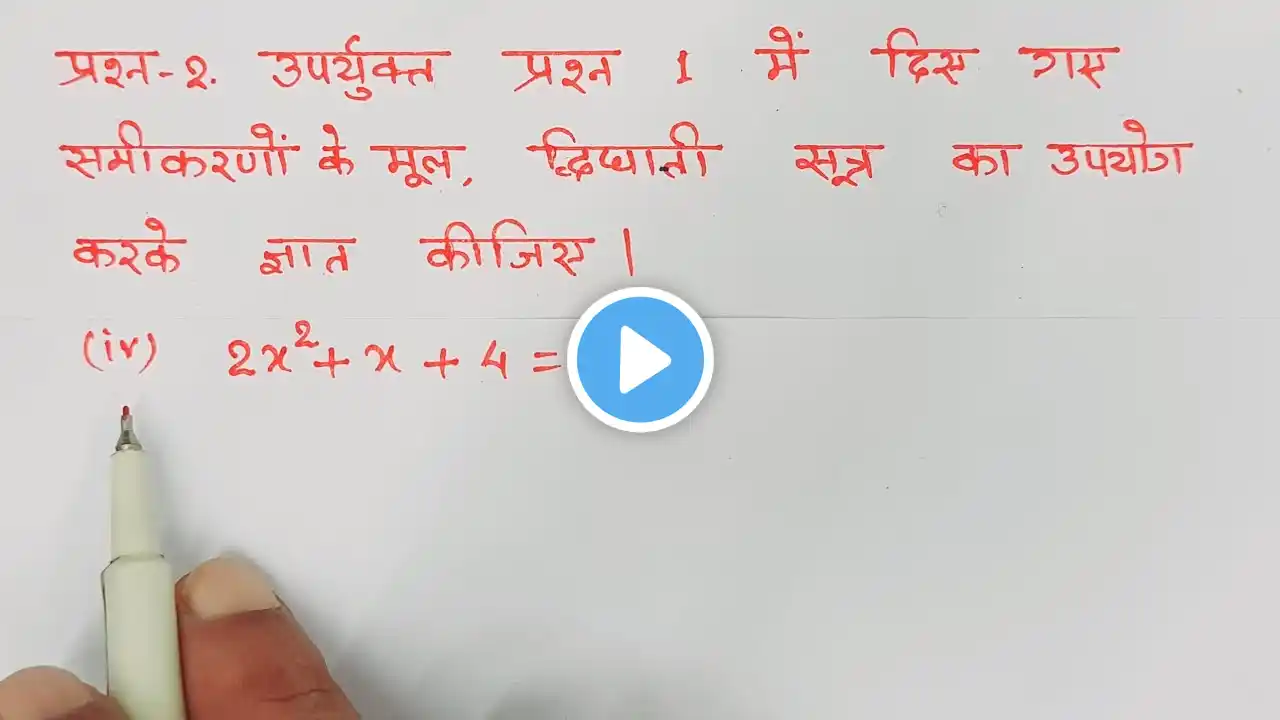 प्रश्न-2. उपर्युक्त प्रश्न 1 में दिए गए
समीकरणों के मूल, द्विघाती सूत्र का उपयोग
करके ज्ञात कीजिए |
(iv) 2x² + x + 4 =